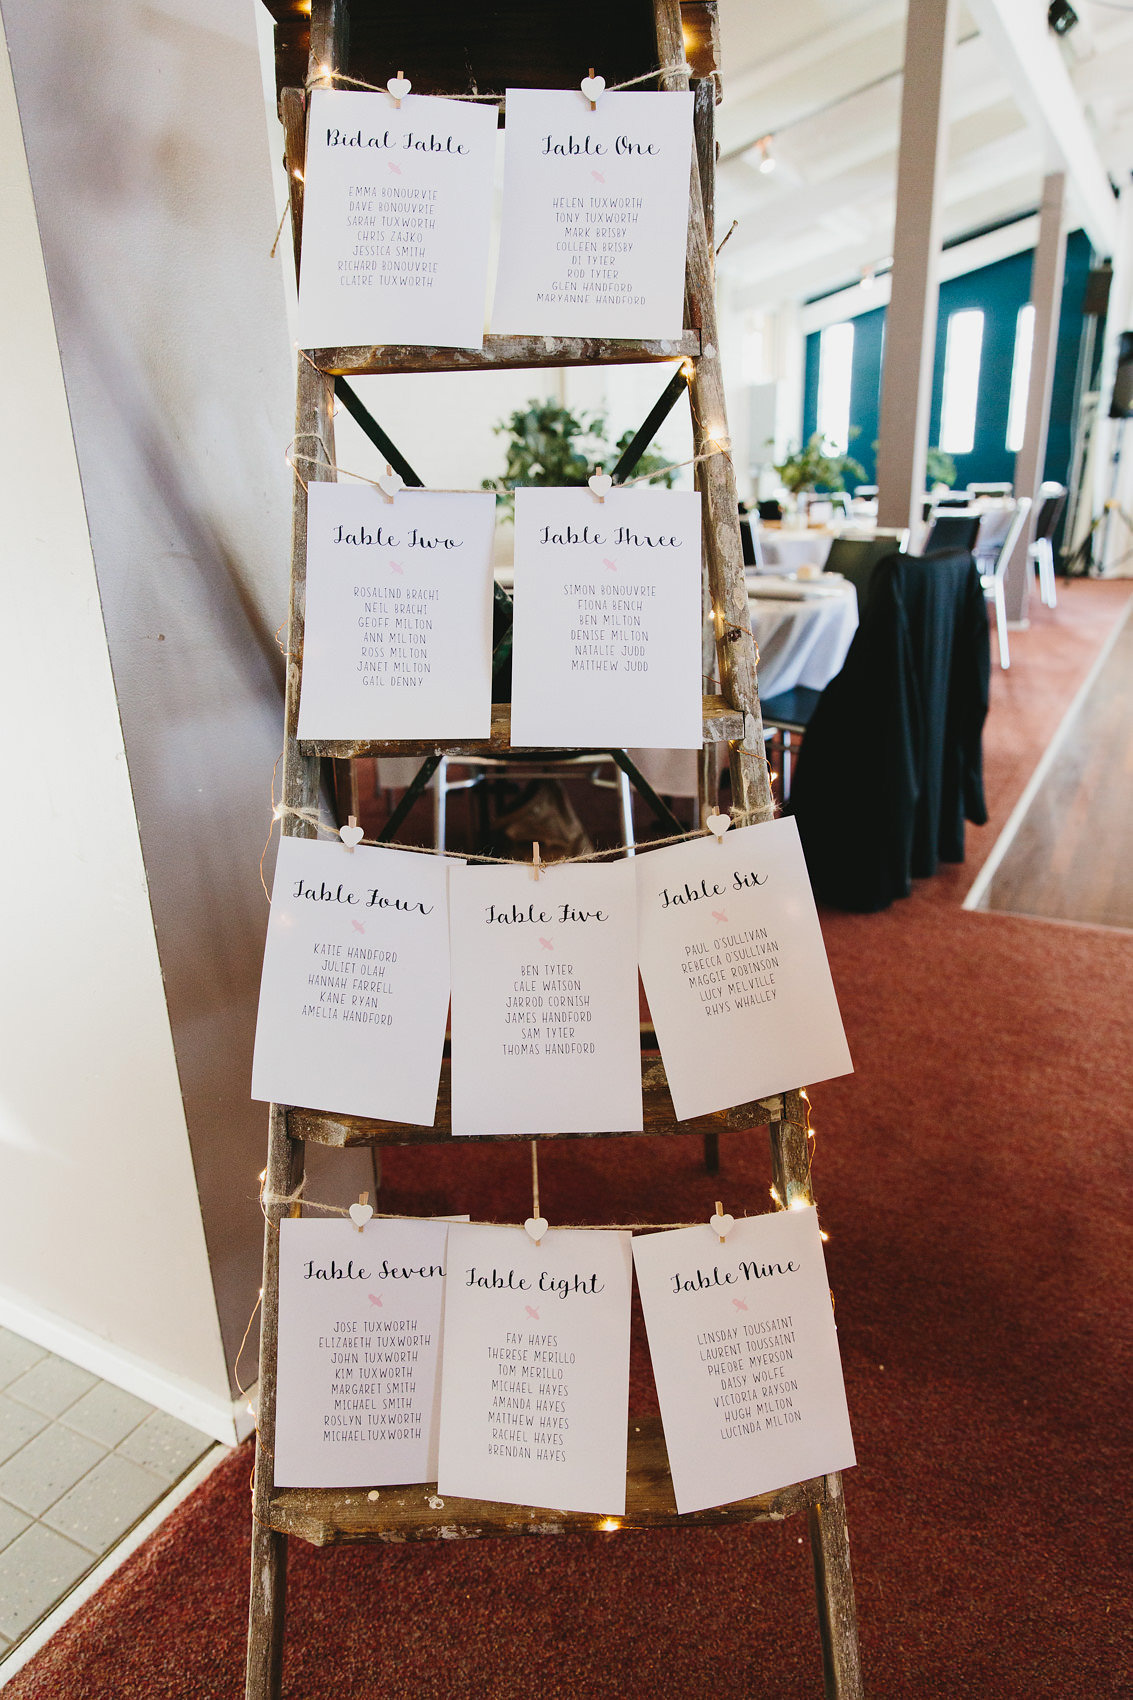 Bidal Table
EMMA BONOURVIE
DAVE BONOUVRIE
SARAH TUXWORTH
CHRIS ZAJKO
JESSICA SMITH
RICHARD BONOUVRIE
CLAIRE TUXWORTH
Table One
HELEN TUXWORTH
TONY TUXWORTH
MARK BRISBY
COLLEEN BRISBY
DI TYTER
ROD TYTER
GLEN HANDFORD
MARYANNE HANDFORD
Table Two
ROSALIND BRACHI
NEIL BRACHI
GEOFF MILTON
ANN MILTON
ROSS MILTON
JANET MILTON
GAIL DENNY
Table Three
SIMON BONOUVRIE
FIONA BENCH
BEN MILTON
DENISE MILTON
NATALIE JUDD
MATTHEW JUDD
Table Four
KATIE HANDFORD
JULIET OLAH
HANNAH FARRELL
KANE RYAN
AMELIA HANDFORD
Table Five
BEN TYTER
CALE WATSON
JARROD CORNISH
JAMES HANDFORD
SAM TYTER
THOMAS HANDFORD
Table Six
PAUL O'SULLIVAN
REBECCA O'SULLIVAN
MAGGIE ROBINSON
LUCY MELVILLE
RHYS WHALLEY
Table Seven
JOSE TUXWORTH
ELIZABETH TUXWORTH
JOHN TUXWORTH
KIM TUXWORTH
MARGARET SMITH
MICHAEL SMITH
ROSLYN TUXWORTH
MICHAELTUXWORTH
Table Eight
FAY HAYES
THERESE MERILLO
TOM MERILLO
MICHAEL HAYES
AMANDA HAYES
MATTHEW HAYES
RACHEL HAYES
BRENDAN HAYES
Table Nine
LINSDAY TOUSSAINT
LAURENT TOUSSAINT
PHEOBE MYERSON
DAISY WOLFE
VICTORIA RAYSON
HUGH MILTON
LUCINDA MILTON